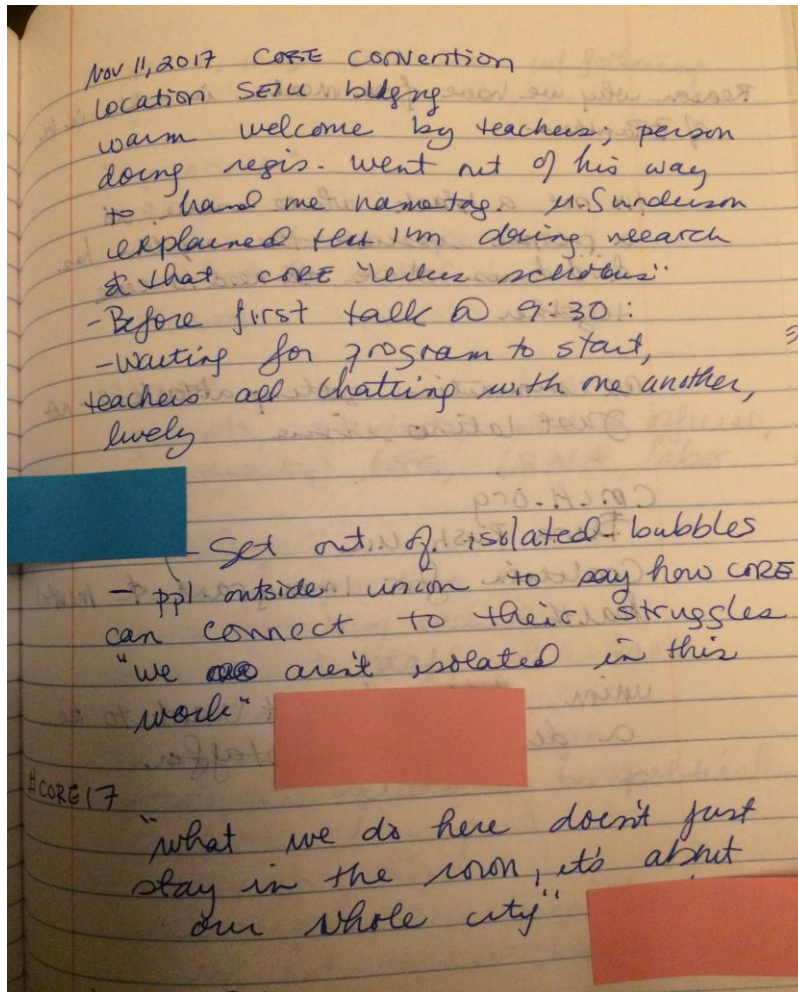 Nov 11, 2017 CORE Convention
location SEIU bldgng
warm welcome by teachers; person
doing regis. went out of his way
to hand me nametag.
explained that I'm doing research
& that CORE "
- Before first talk @ 9:30:
- Waiting for program to start,
teachers all chatting with one another,
lively
- Get out of isolated bubbles
- ppl outside union to say how CORE
can connect to their struggles
"we aren't isolated in this
work"
#CORE17
"what we do here doesn't just
stay in the room, it's about
our whole city"